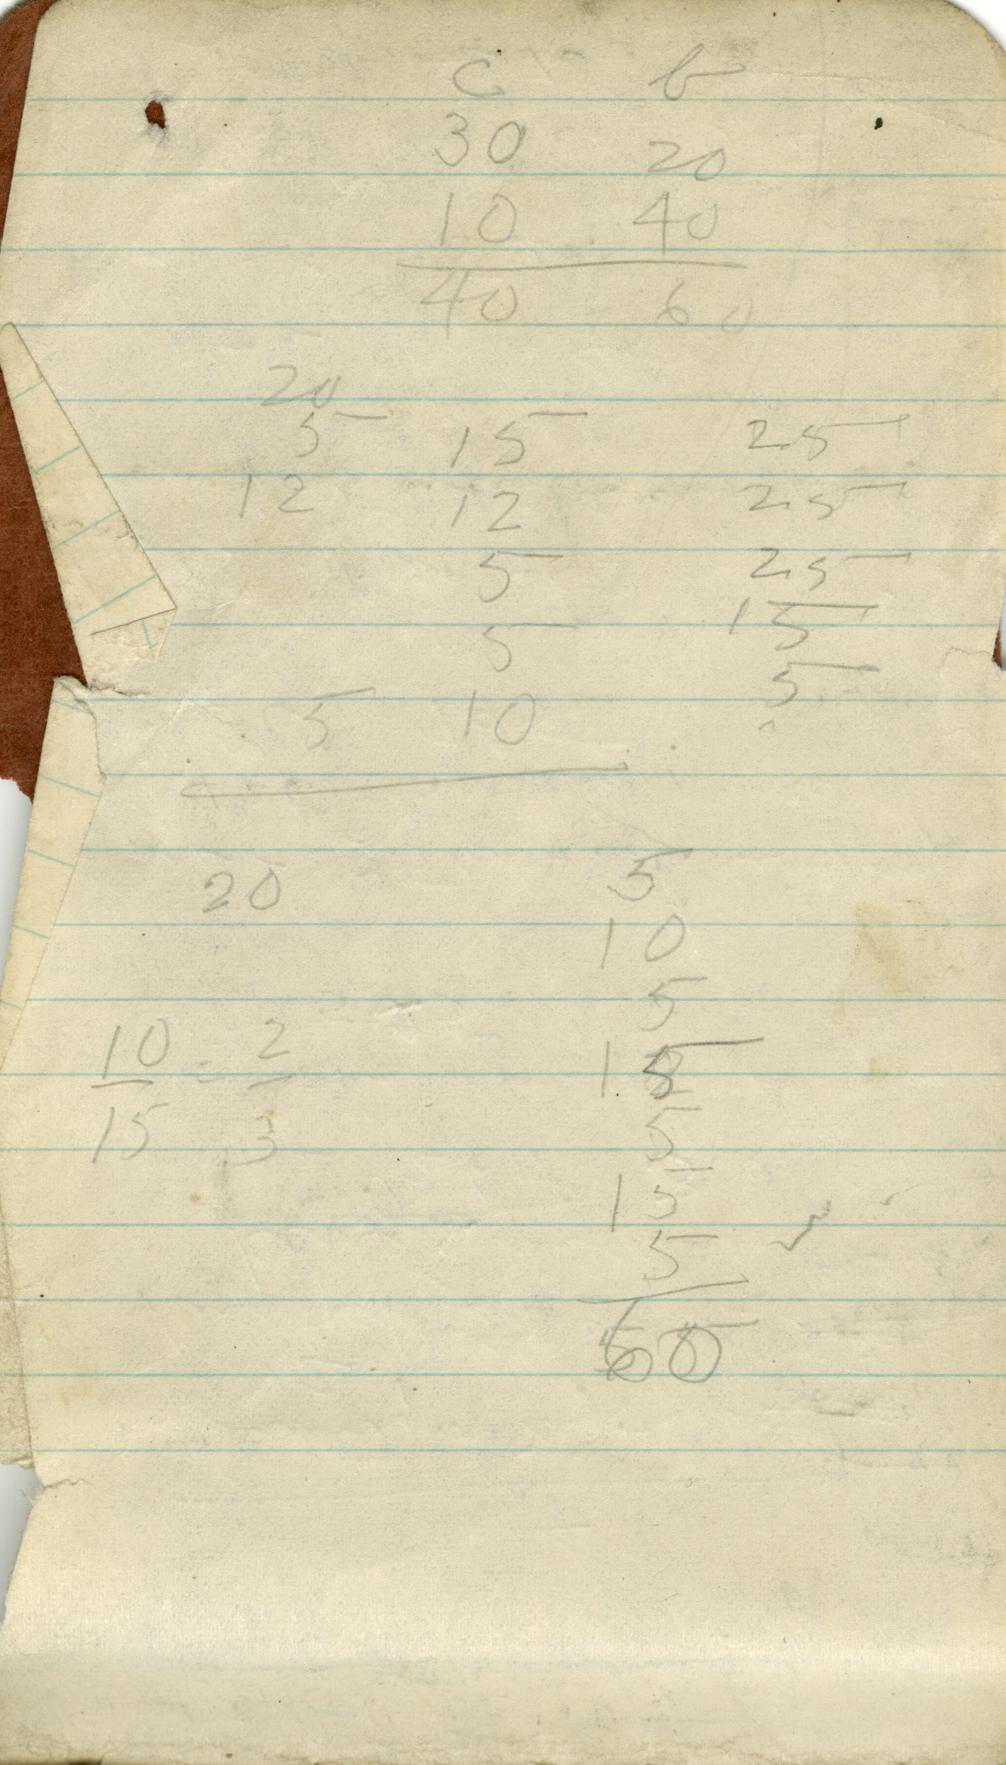 c b
30 20
10 40
40 60
20
5 15 25
12 12 25
5 25
15
5 5
5 10
20 5
10
5
10 2 15
15 3 5
15
5
60